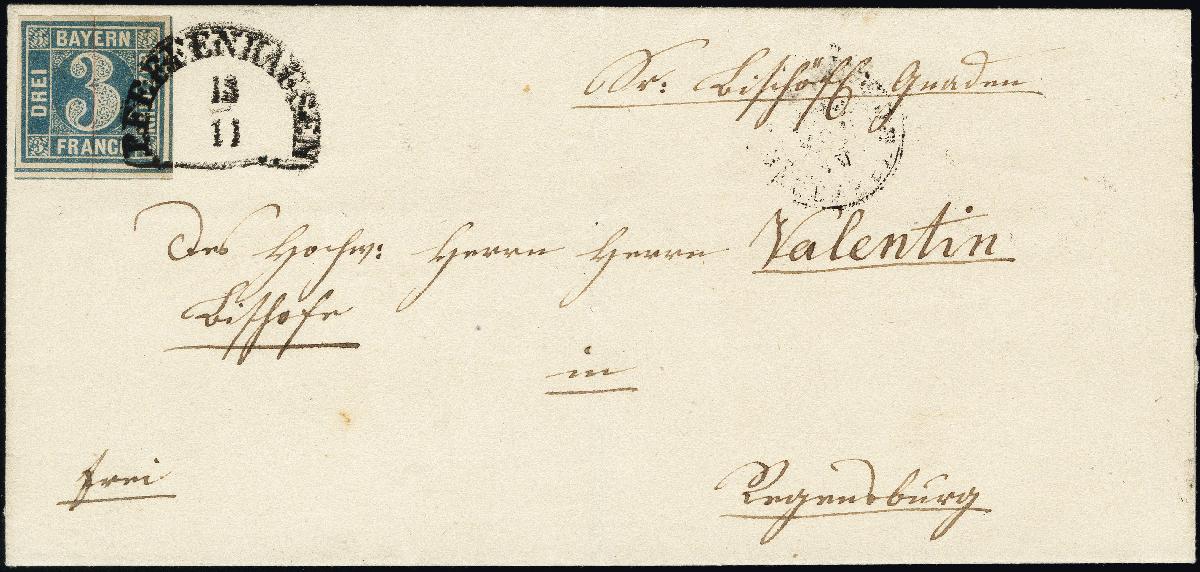 BAYERN
DREI
3
FRANCO
PFEFFENHAUSEN
13
11
Sr: Bischöfl: Gnaden
Des Hochw: Herrn Herrn Valentin
Bischofe
in
frei
Regensburg